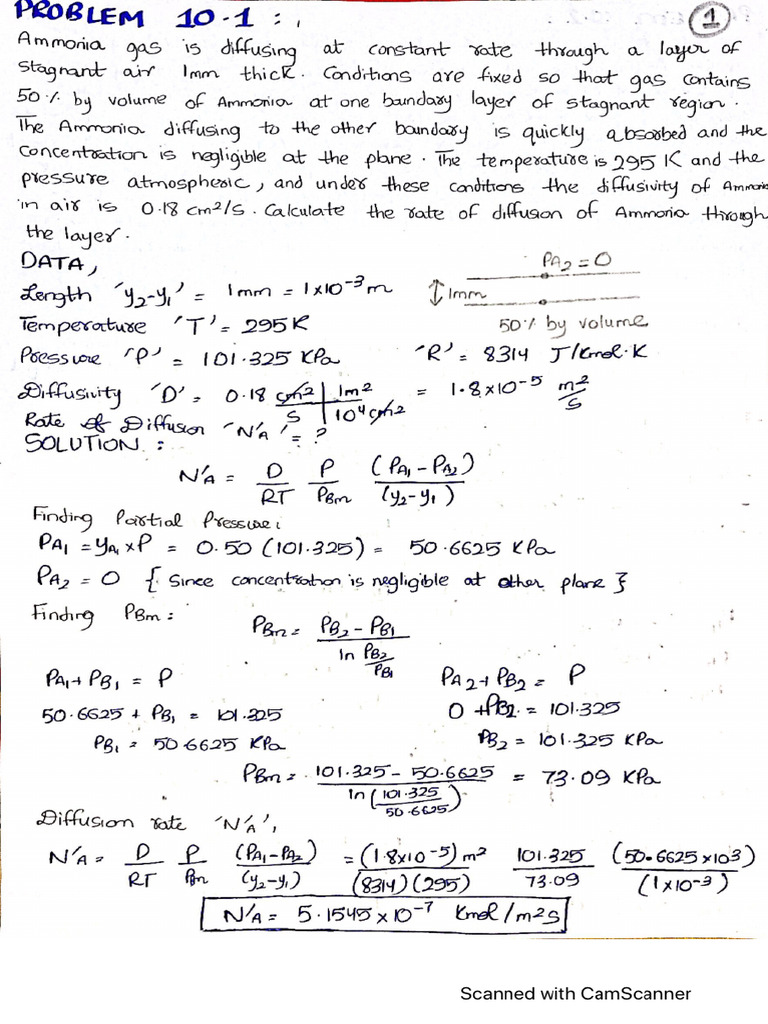 PROBLEM 10-1 :
1
Ammonia gas is diffusing at constant rate through a layer of
stagnant air 1mm thick. Conditions are fixed so that gas contains
50% by volume of Ammonia at one bundary layer of stagnant region.
The Ammonia diffusing to the other boundary is quickly absorbed and the
concentration is negligible at the plane. The temperature is 295 K and the
pressure atmospheric, and under these conditions the diffusivity of Ammonia
in air is 0.18 cm²/s. Calculate the rate of diffusion of Ammonia through
the layer.
DATA,
PA2 = 0
Length 'y2-y1' = 1mm = 1×10⁻³m
1mm
Temperature 'T' = 295K
50% by volume
Pressure 'P' = 101.325 KPa 'R' = 8314 J/Kmol.K
Diffusivity 'D' = 0.18 cm²/s | 1m²/10⁴cm² = 1.8×10⁻⁵ m²/s
Rate of Diffusion 'N'A' = ?
SOLUTION :
N'A = D/RT P/PBm (PA1 - PA2)/(y2-y1)
Finding Partial Pressure:
PA1 = yA1 × P = 0.50 (101.325) = 50.6625 KPa
PA2 = 0 { Since concentration is negligible at other plane }
Finding PBm :
PBm = PB2 - PB1 / ln PB2/PB1
PA1 + PB1 = P PA2 + PB2 = P
50.6625 + PB1 = 101.325 0 + PB2 = 101.325
PB1 = 50.6625 KPa PB2 = 101.325 KPa
PBm = 101.325 - 50.6625 / ln (101.325/50.6625) = 73.09 KPa
Diffusion rate 'N'A',
N'A = D/RT P/PBm (PA1-PA2)/(y2-y1) = (1.8×10⁻⁵)m²/(8314)(295) 101.325/73.09 (50.6625×10³)/(1×10⁻³)
N'A = 5.1545×10⁻⁷ Kmol/m²s
Scanned with CamScanner